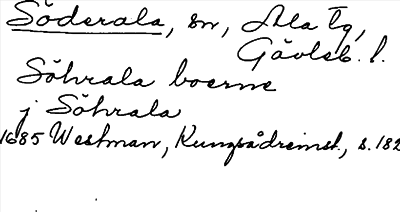 Söderala, sn, Ala tg,
Gävleb. l.
Söhrala boerne
j Söhrala
1685 Westman, Kungsådreinst., s. 182